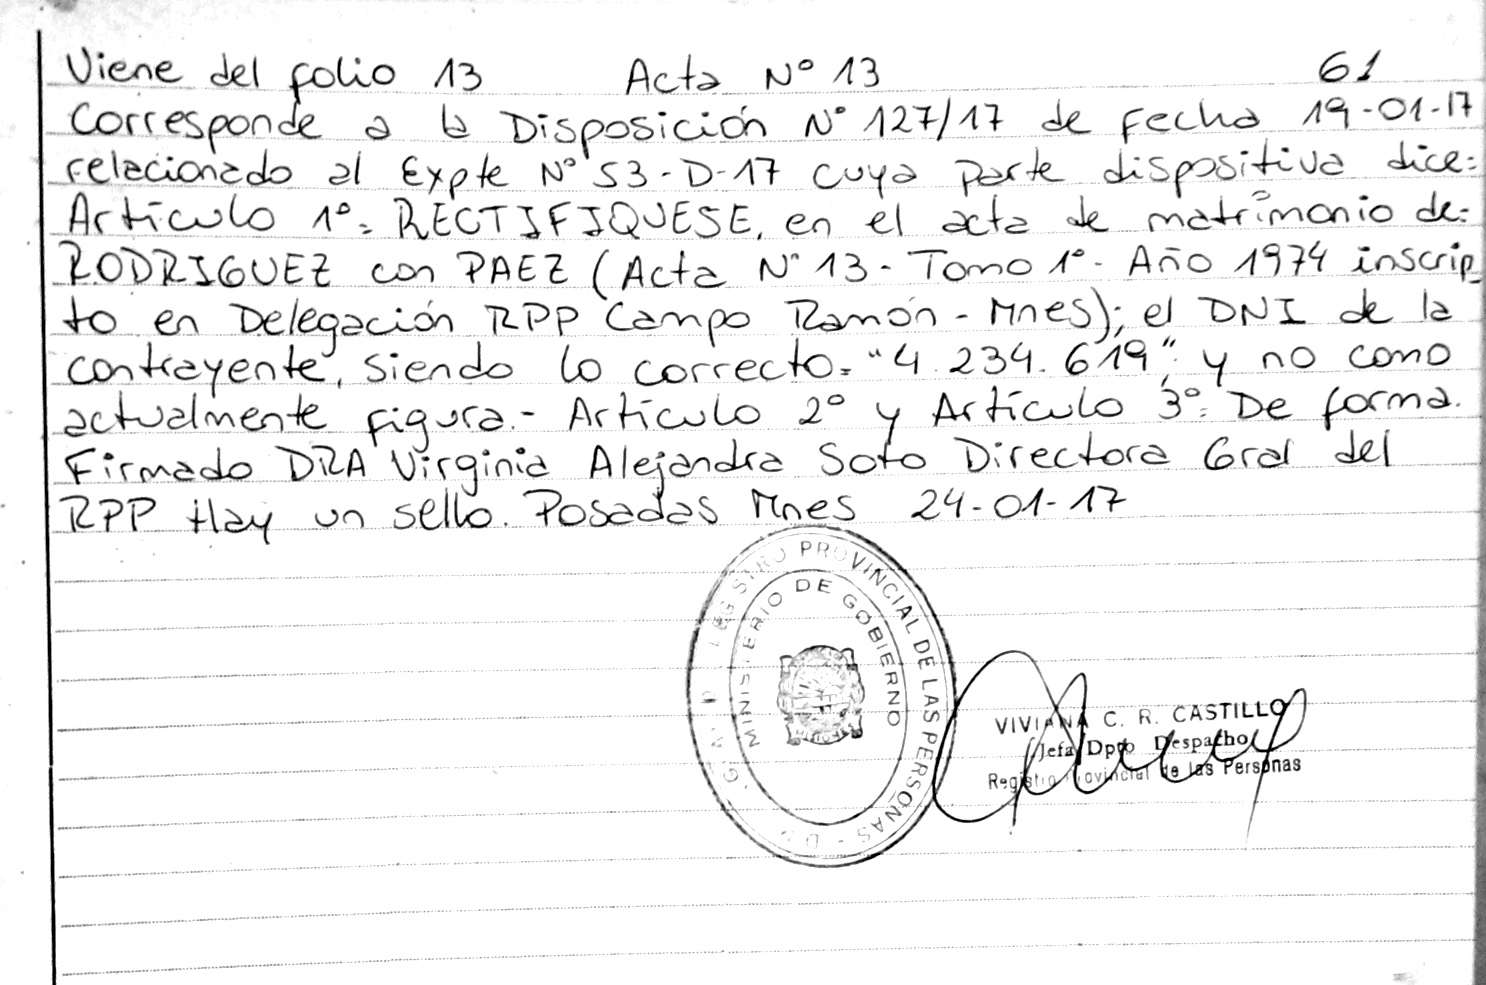 Viene del folio 13 Acta Nº 13 61
Corresponde a la Disposición Nº 127/17 de Fecha 19-01-17
relacionado al Expte Nº 53-D-17 cuya parte dispositiva dice:
Artículo 1º: RECTIFIQUESE, en el acta de matrimonio de:
RODRIGUEZ con PAEZ (Acta Nº 13 - Tomo 1º - Año 1974 inscrip_
to en Delegación RPP Campo Ramón - Mnes); el DNI de la
contrayente, siendo lo correcto: "4.234.619"; y no como
actualmente figura.- Artículo 2º y Artículo 3º: De forma.
Firmado DRA Virginia Alejandra Soto Directora Gral del
RPP Hay un sello. Posadas Mnes 24-01-17
REGISTRO PROVINCIAL DE LAS PERSONAS
MINISTERIO DE GOBIERNO
VIVIANA C. R. CASTILLO
Jefa Dpto Despacho
Registro Provincial de las Personas